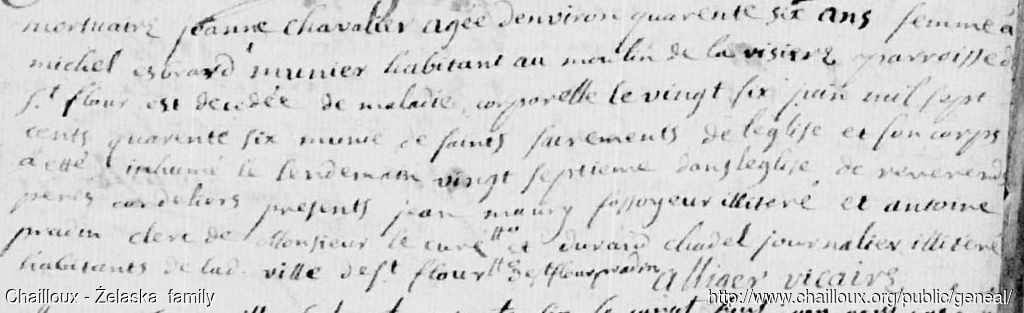 mortuaire jeanne chavalier agée denviron quarente six ans femme a
michel esbrard munier habitant au moulin de la visiere parroisse d
St flour est decedée de maladie corporelle le vingt six juin mil sept
cents quarente six munie de saints sacrements de leglise et son corps
a etté inhumé le lendemain vingt septieme dans leglise de reverends
peres cordeliers presents jean maury fossoyeur illiteré et antoine
pradin clerc de Monsieur le curé et durand chadel journalier illiteré
habitants de lad. ville de St flour pradin alliger vicaire
Chailloux - Żelaska family
http://www.chailloux.org/public/geneal/